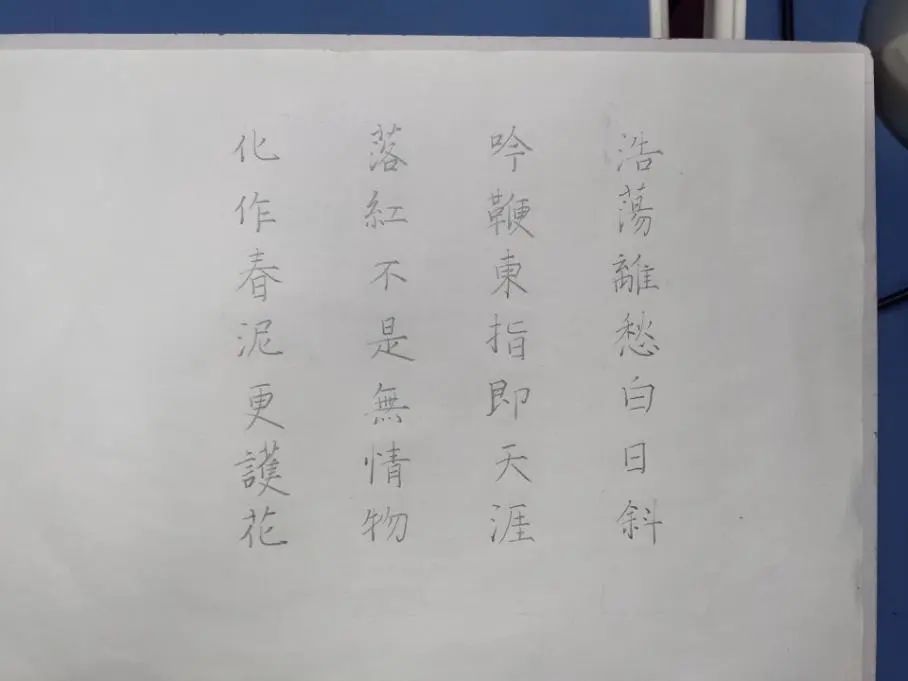 浩蕩離愁白日斜
吟鞭東指即天涯
落紅不是無情物
化作春泥更護花